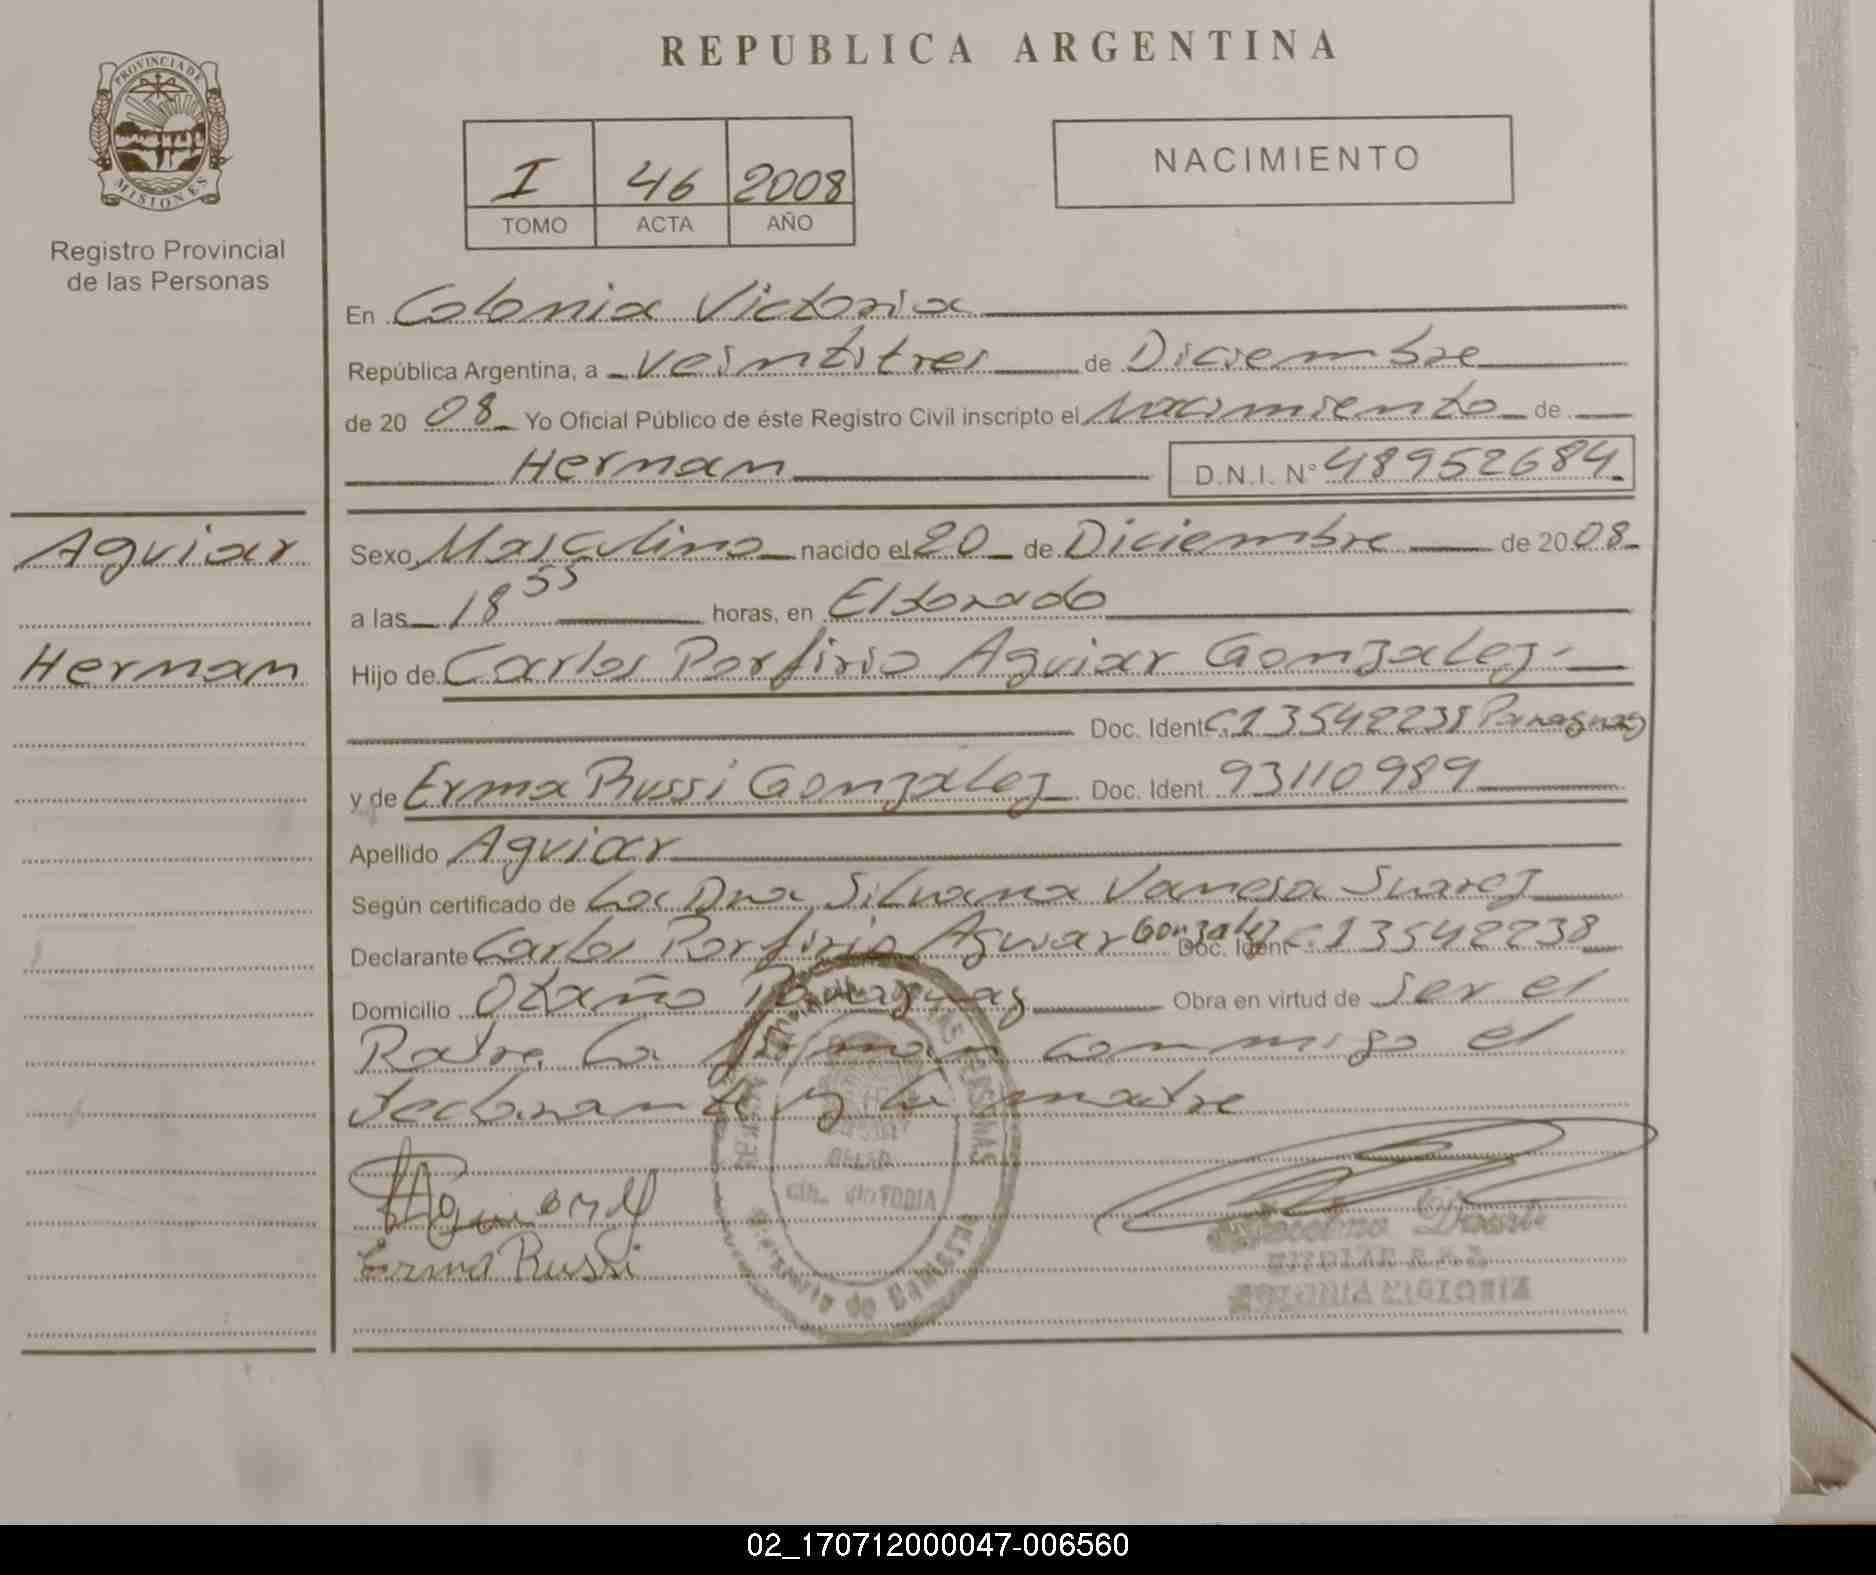 REPUBLICA ARGENTINA
PROVINCIA DE
MISIONES
Registro Provincial
de las Personas
I 46 2008
TOMO ACTA AÑO
NACIMIENTO
En Colonia Victoria
República Argentina, a veintitres de Diciembre
de 20 08 Yo Oficial Público de éste Registro Civil inscripto el Nacimiento de
Herman D.N.I. N° 48952684
Aguiar
Herman
Sexo Masculino nacido el 20 de Diciembre de 20 08
a las 18 55 horas, en Eldorado
Hijo de Carlos Porfirio Aguiar Gonzalez
Doc. Ident C.13542238 Paraguay
y de Erma Russi Gonzalez Doc. Ident 93110989
Apellido Aguiar
Según certificado de La Dra Silvana Vanesa Suarez
Declarante Carlos Porfirio Aguiar Gonzalez Doc. Ident C.13542238
Domicilio Otaño Paraguay Obra en virtud de ser el
Padre. La firman conmigo el
declarante y la madre
Erma Russi
02_170712000047-006560